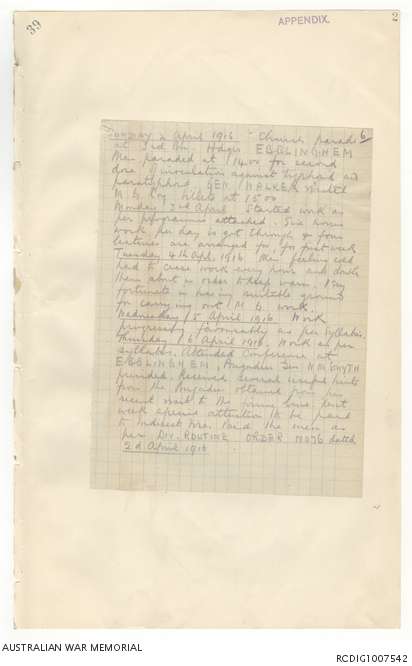 39
APPENDIX.
2
6
Sunday 2 April 1916 Church Parade
at 3rd Bn. Hdqrs EBBLINGHEM
Men paraded at 1400 for second
dose of inoculation against typhoid and
paratyphoid. GEN WALKER visited
M.G. Coy billets at 1500
Monday 3rd April Started work as
per programme attached. Six hours
work per day is got through & four
lectures are arranged for, for first week
Tuesday 4th Apl. 1916 Men feeling cold
had to cease work every hour and double
them about in order to keep warm. Very
fortunate in having suitable ground
for carrying out M.G. work
Wednesday 5 April 1916 Work
progressing favourably as per syllabus.
Thursday 6 April 1916. Work as per
syllabus. Attended Conference at
EBBLINGHEM, Brigadier Gen N.M. SMYTH
presided. Received several useful hints
from the Brigadier obtained from his
recent visit to the firing line. Next
week special attention to be paid
to Indirect fire. Paid the men as
per DIV. ROUTINE ORDER No 76 dated
2d April 1916
AUSTRALIAN WAR MEMORIAL
RCDIG1007542